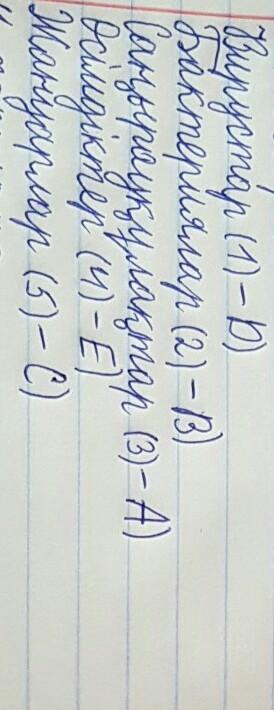 Вирустар (1) – D)
Бактериялар (2) – B)
Саңырауқұлақтар (3) – A)
Өсімдіктер (4) – E)
Жануарлар (5) – C)